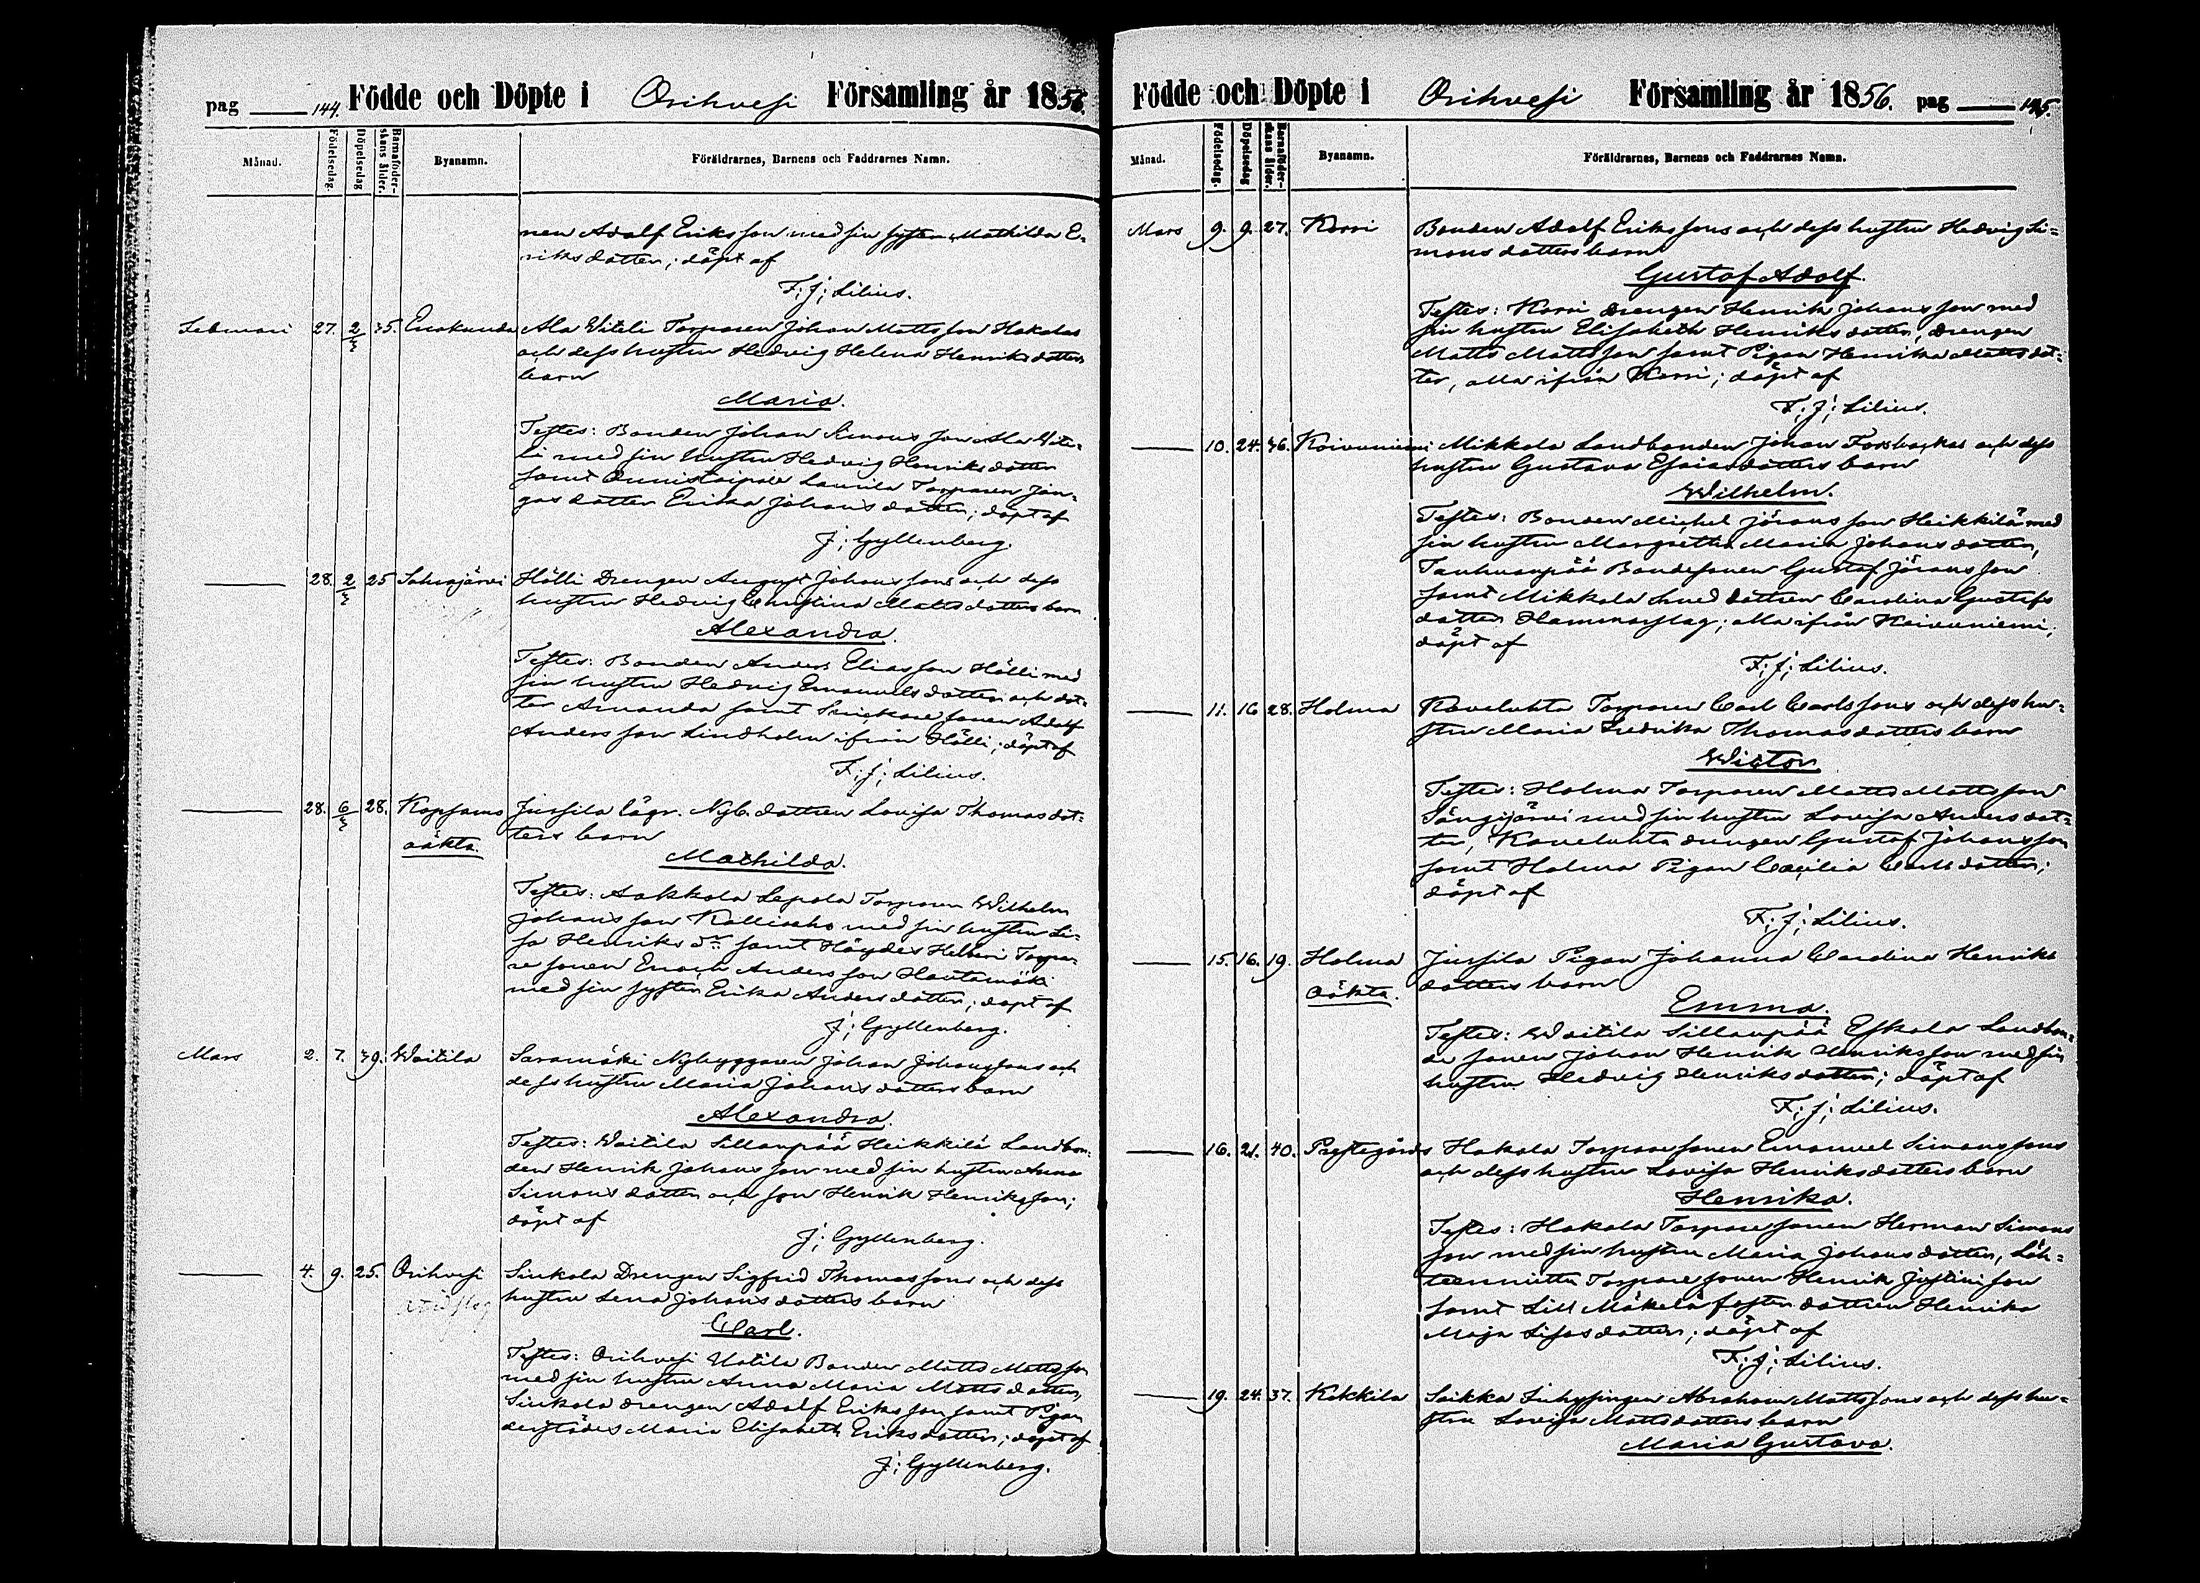 pag 144. Födde och Döpte i Orihvesi Församling år 1856.
Månad. Födelsedag. Döpelsedag Barnaföderskans ålder. Byanamn. Föräldrarnes, Barnens och Faddrarnes Namn.
nen Adolf Eriksson med sin syster Mathilda E-
riksdotter; döpt af
F; J; Lilius.
Februari 27. 2/3 35. Enokunda Ala Uiteli Torparen Johan Mattsson Hakalas
och dess hustru Hedvig Helena Henriksdotters
barn
Maria.
Testes: Bonden Johan Simonsson Ala Uite-
li med sin hustru Hedvig Henriksdotter
samt Laurila Torparen Jön-
gas dotter Erika Johansdotter; döpt af
J; Gyllenberg.
28. 2/3 25 Sahrajärvi Hölli Drengen August Johanssons och dess
hustru Hedvig Christina Mattsdotters barn
Alexandra.
Testes: Bonden Anders Eliasson Hölli med
sin hustru Hedvig Emanuelsdotter och dot-
ter Amanda samt Snickare sonen Adolf
Andersson Lindholm ifrån Hölli; döpt af
F; J; Lilius.
28. 6/3 28. Kopsamo Jussila lägr. Nyb. dottren Lovisa Thomasdot-
oäkta. ters barn
Mathilda.
Testes: Aakkola Lepola Torparen Wilhelm
Johansson Kallioaho med sin hustru Li-
sa Henriks dr samt Höydes Helleri Torpa-
re sonen Enoch Andersson Hautamäki
med sin syster Erika Andersdotter; döpt af
J; Gyllenberg.
Mars 2. 7. 39. Woitila Saramäki Nybyggaren Johan Johanssons och
dess hustru Maria Johansdotters barn
Alexandra.
Testes: Woitila Sillanpää Heikkilä Landbon-
den Henrik Johansson med sin hustru Anna
Simonsdotter och son Henrik Henriksson;
döpt af
J; Gyllenberg.
4. 9. 25. Orihvesi Sinkola Drengen Sigfrid Thomassons och dess
hustru Lena Johansdotters barn
Carl.
Testes: Orihvesi Uotila Bonden Matts Mattsson
med sin hustru Anna Maria Mattsdotter,
Sinkola drengen Adolf Eriksson samt Pigan
derstädes Maria Elisabeth Eriksdotter; döpt af
J; Gyllenberg.
Födde och Döpte i Orihvesi Församling år 1856. pag 145.
Månad. Födelsedag. Döpelsedag Barnaföderskans ålder. Byanamn. Föräldrarnes, Barnens och Faddrarnes Namn.
Mars 9. 9. 27. Korri Bonden Adolf Erikssons och dess hustru Hedvig Si-
monsdotters barn
Gustaf Adolf.
Testes: Korri drengen Henrik Johansson med
sin hustru Elisabeth Henriksdotter, drengen
Matts Mattsson samt Pigan Henrika Mattsdot-
ter, alla ifrån Korri; döpt af
F; J; Lilius.
10. 24. 36. Koivuniemi Mikkola Landbonden Johan Forsbackas och dess
hustru Gustava Esaiasdotters barn
Wilhelm.
Testes: Bonden Michel Jöransson Heikkilä med
sin hustru Margretha Maria Johansdotter,
Tanhuanpää Bondesonen Gustaf Jöransson
samt Mikkola smed dottren Carolina Gustafs
dotter Hammarslag; alla ifrån Koivuniemi;
döpt af
F; J; Lilius.
11. 16 28. Holma Kavelahti Torparen Carl Carlssons och dess hu-
stru Maria Fredrika Thomasdotters barn
Wictor
Testes: Holma Torparen Matts Mattsson
Sängijärvi med sin hustru Lovisa Andersdot-
ter, Kavelahta drengen Gustaf Johansson
samt Holma Pigan Cecilia Carlsdotter;
döpt af
F; J; Lilius.
15. 16. 19. Holma Jussila Pigan Johanna Carolina Henriks
oäkta. dotters barn
Emma.
Testes: Woitila Sillanpää Eskola Landbon-
de sonen Johan Henrik Henriksson med sin
hustru Hedvig Henriksdotter; döpt af
F; J; Lilius.
16. 21. 40. Prestegårds Hakala Torpare sonen Emanuel Simonssons
och dess hustru Lovisa Henriksdotters barn
Henrika.
Testes: Hakala Torpare sonen Herman Simons
son med sin hustru Maria Johansdotter, Läh-
teenmitta Torpare sonen Henrik Justinsson
samt Lill Mäkelä fosterdottren Henrika
Maja Lisasdotter; döpt af
F; J; Lilius.
19. 24. 37. Kokkila Saikka Inhysingen Abraham Mattssons och dess hu-
stru Lovisa Mattsdotters barn
Maria Gustava.